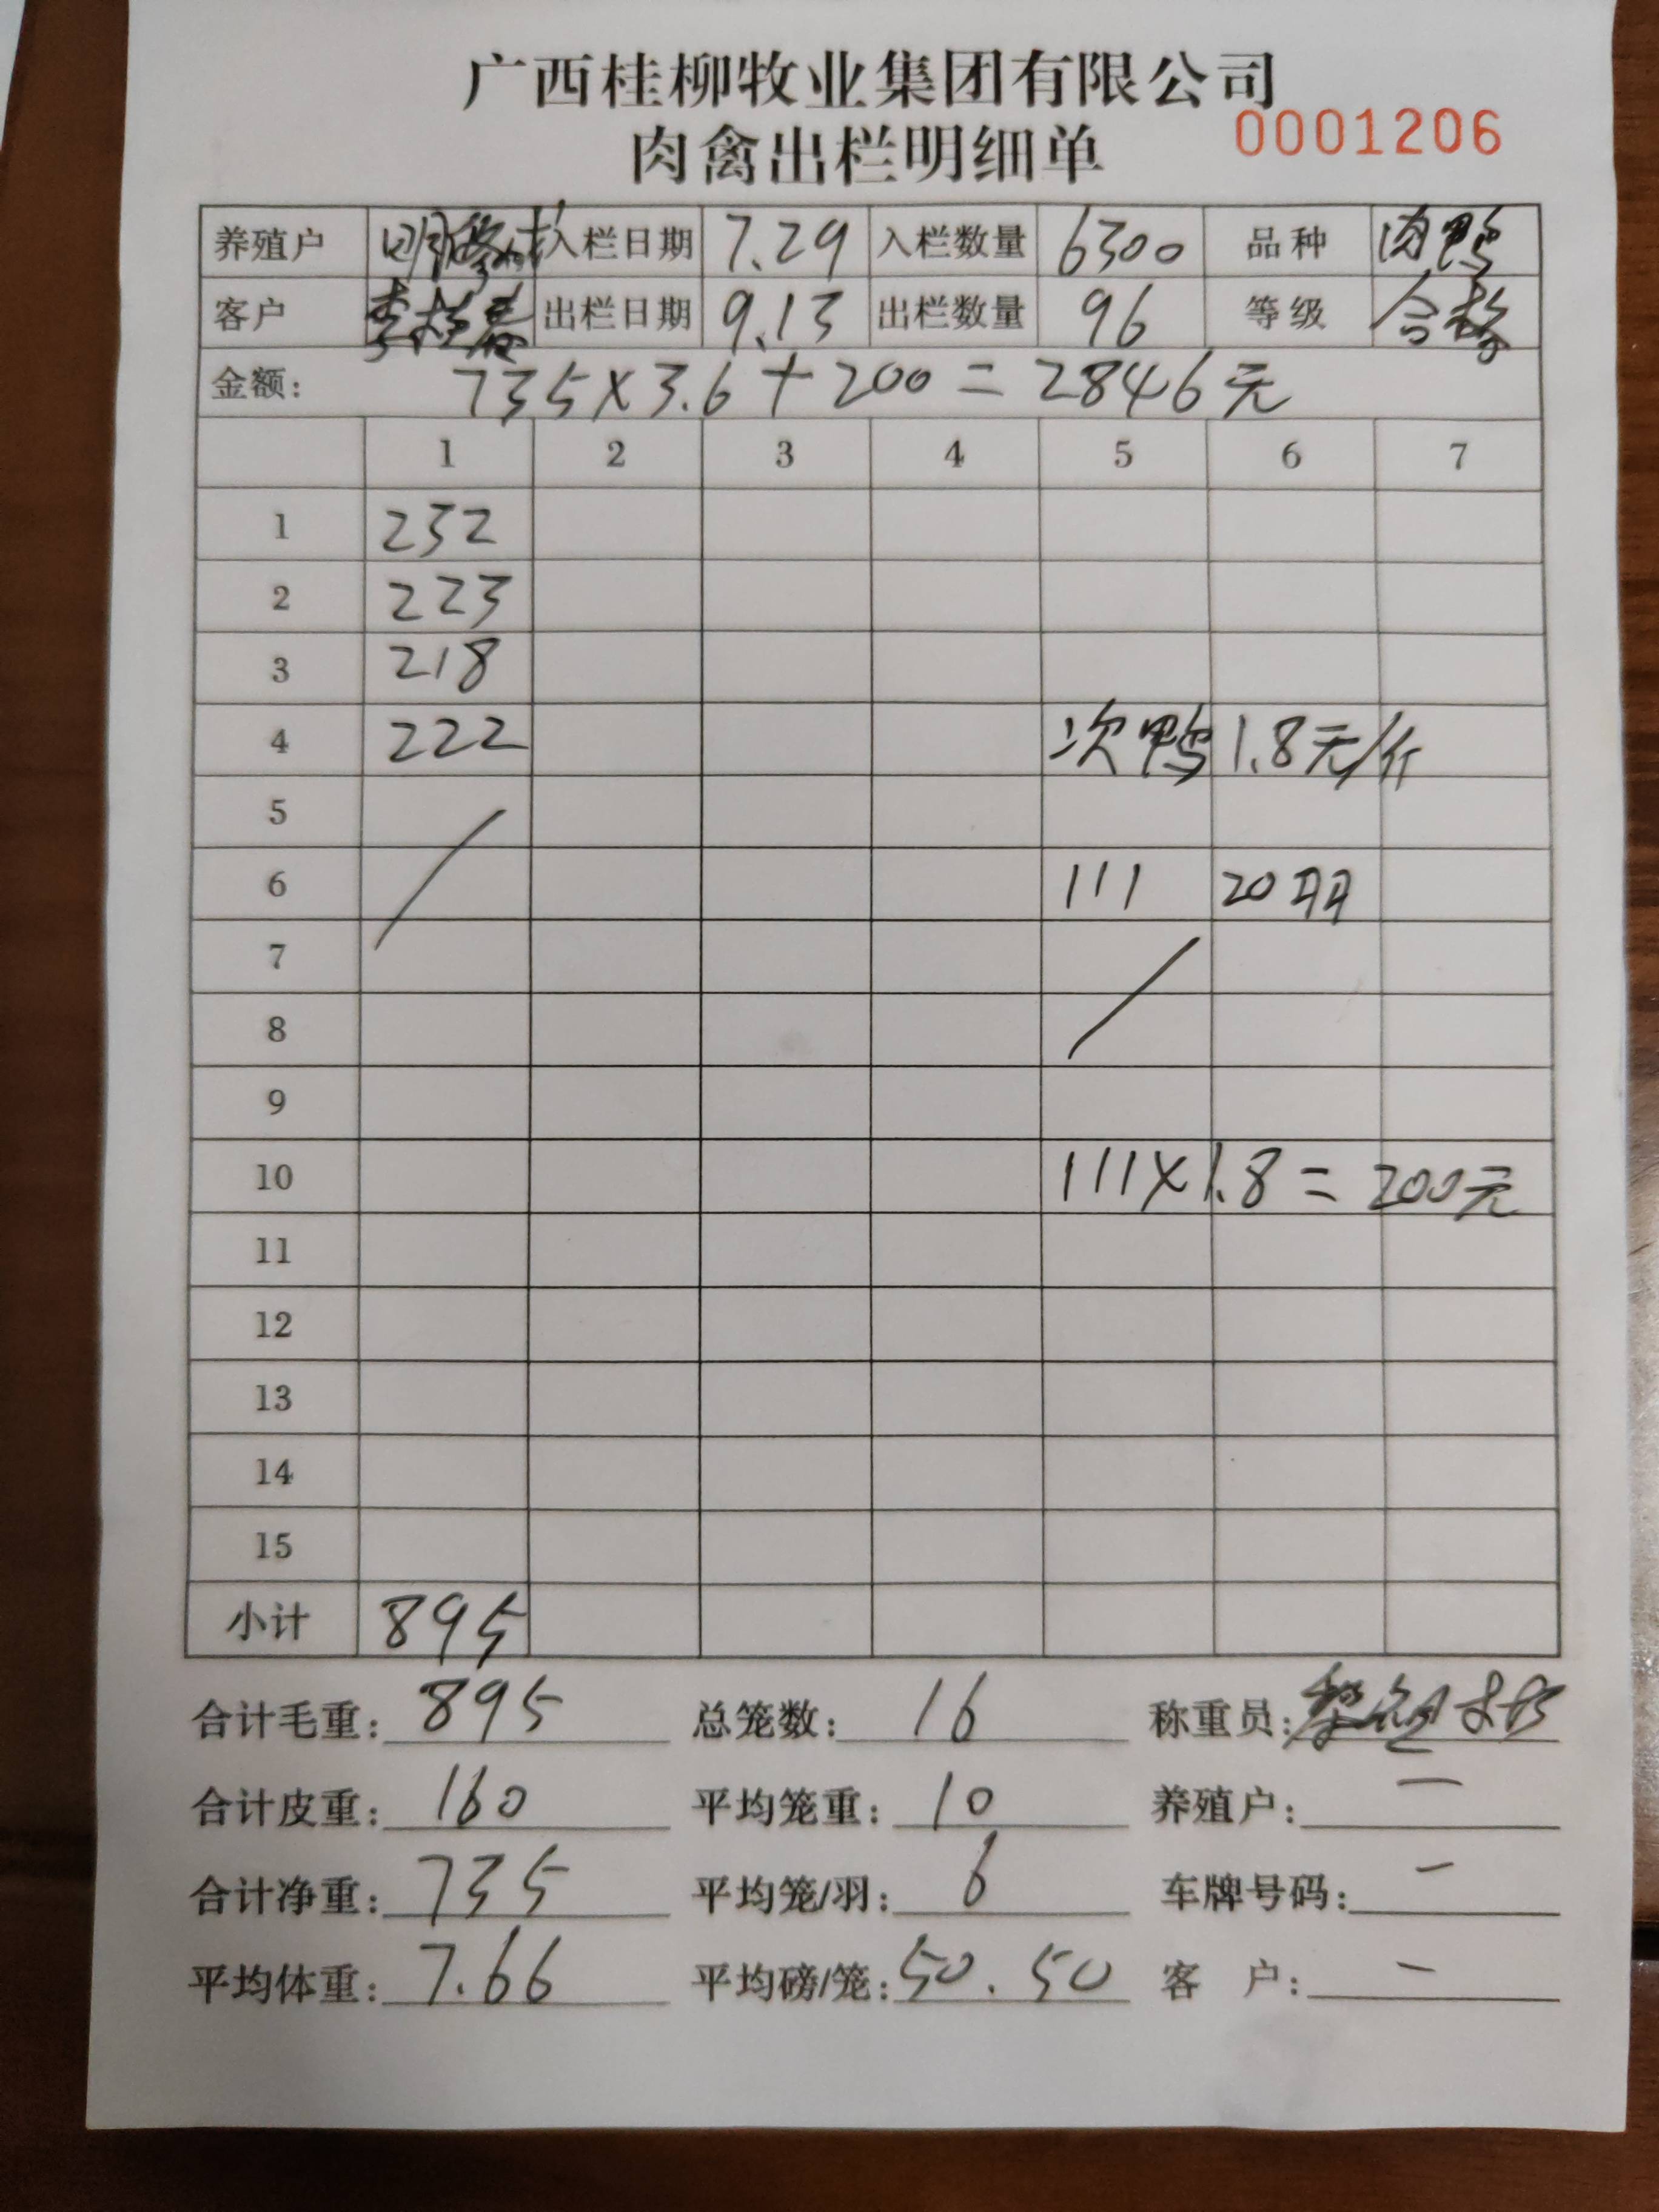 广西桂柳牧业集团有限公司
肉禽出栏明细单 0001206
养殖户 入栏日期 7.29 入栏数量 6300 品种 肉鸭
客户 出栏日期 9.13 出栏数量 96 等级 合格
金额： 735×3.6+200=2846元
1 2 3 4 5 6 7
1 232
2 223
3 218
4 222 次鸭 1.8元/斤
5
6 111 20羽
7
8
9
10 111×1.8=200元
11
12
13
14
15
小计 895
合计毛重： 895 总笼数： 16 称重员：
合计皮重： 160 平均笼重： 10 养殖户： —
合计净重： 735 平均笼/羽： 6 车牌号码： —
平均体重： 7.66 平均磅/笼： 50.50 客 户： —